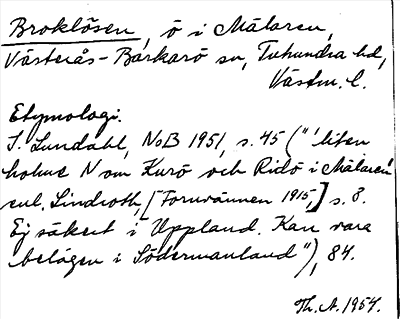 Broklösen, ö i Mälaren,
Västerås-Barkarö sn, Tuhundra hd,
Västm. l.
Etymologi.
I. Lundahl, NoB 1951, s. 45 ("'liten
holme N om Kurö och Ridö i Mälaren'
enl. Lindroth, [Fornvännen 1915,] s. 8.
Ej säkert i Uppland. Kan vara
belägen i Södermanland"), 84.
Th. A. 1954.